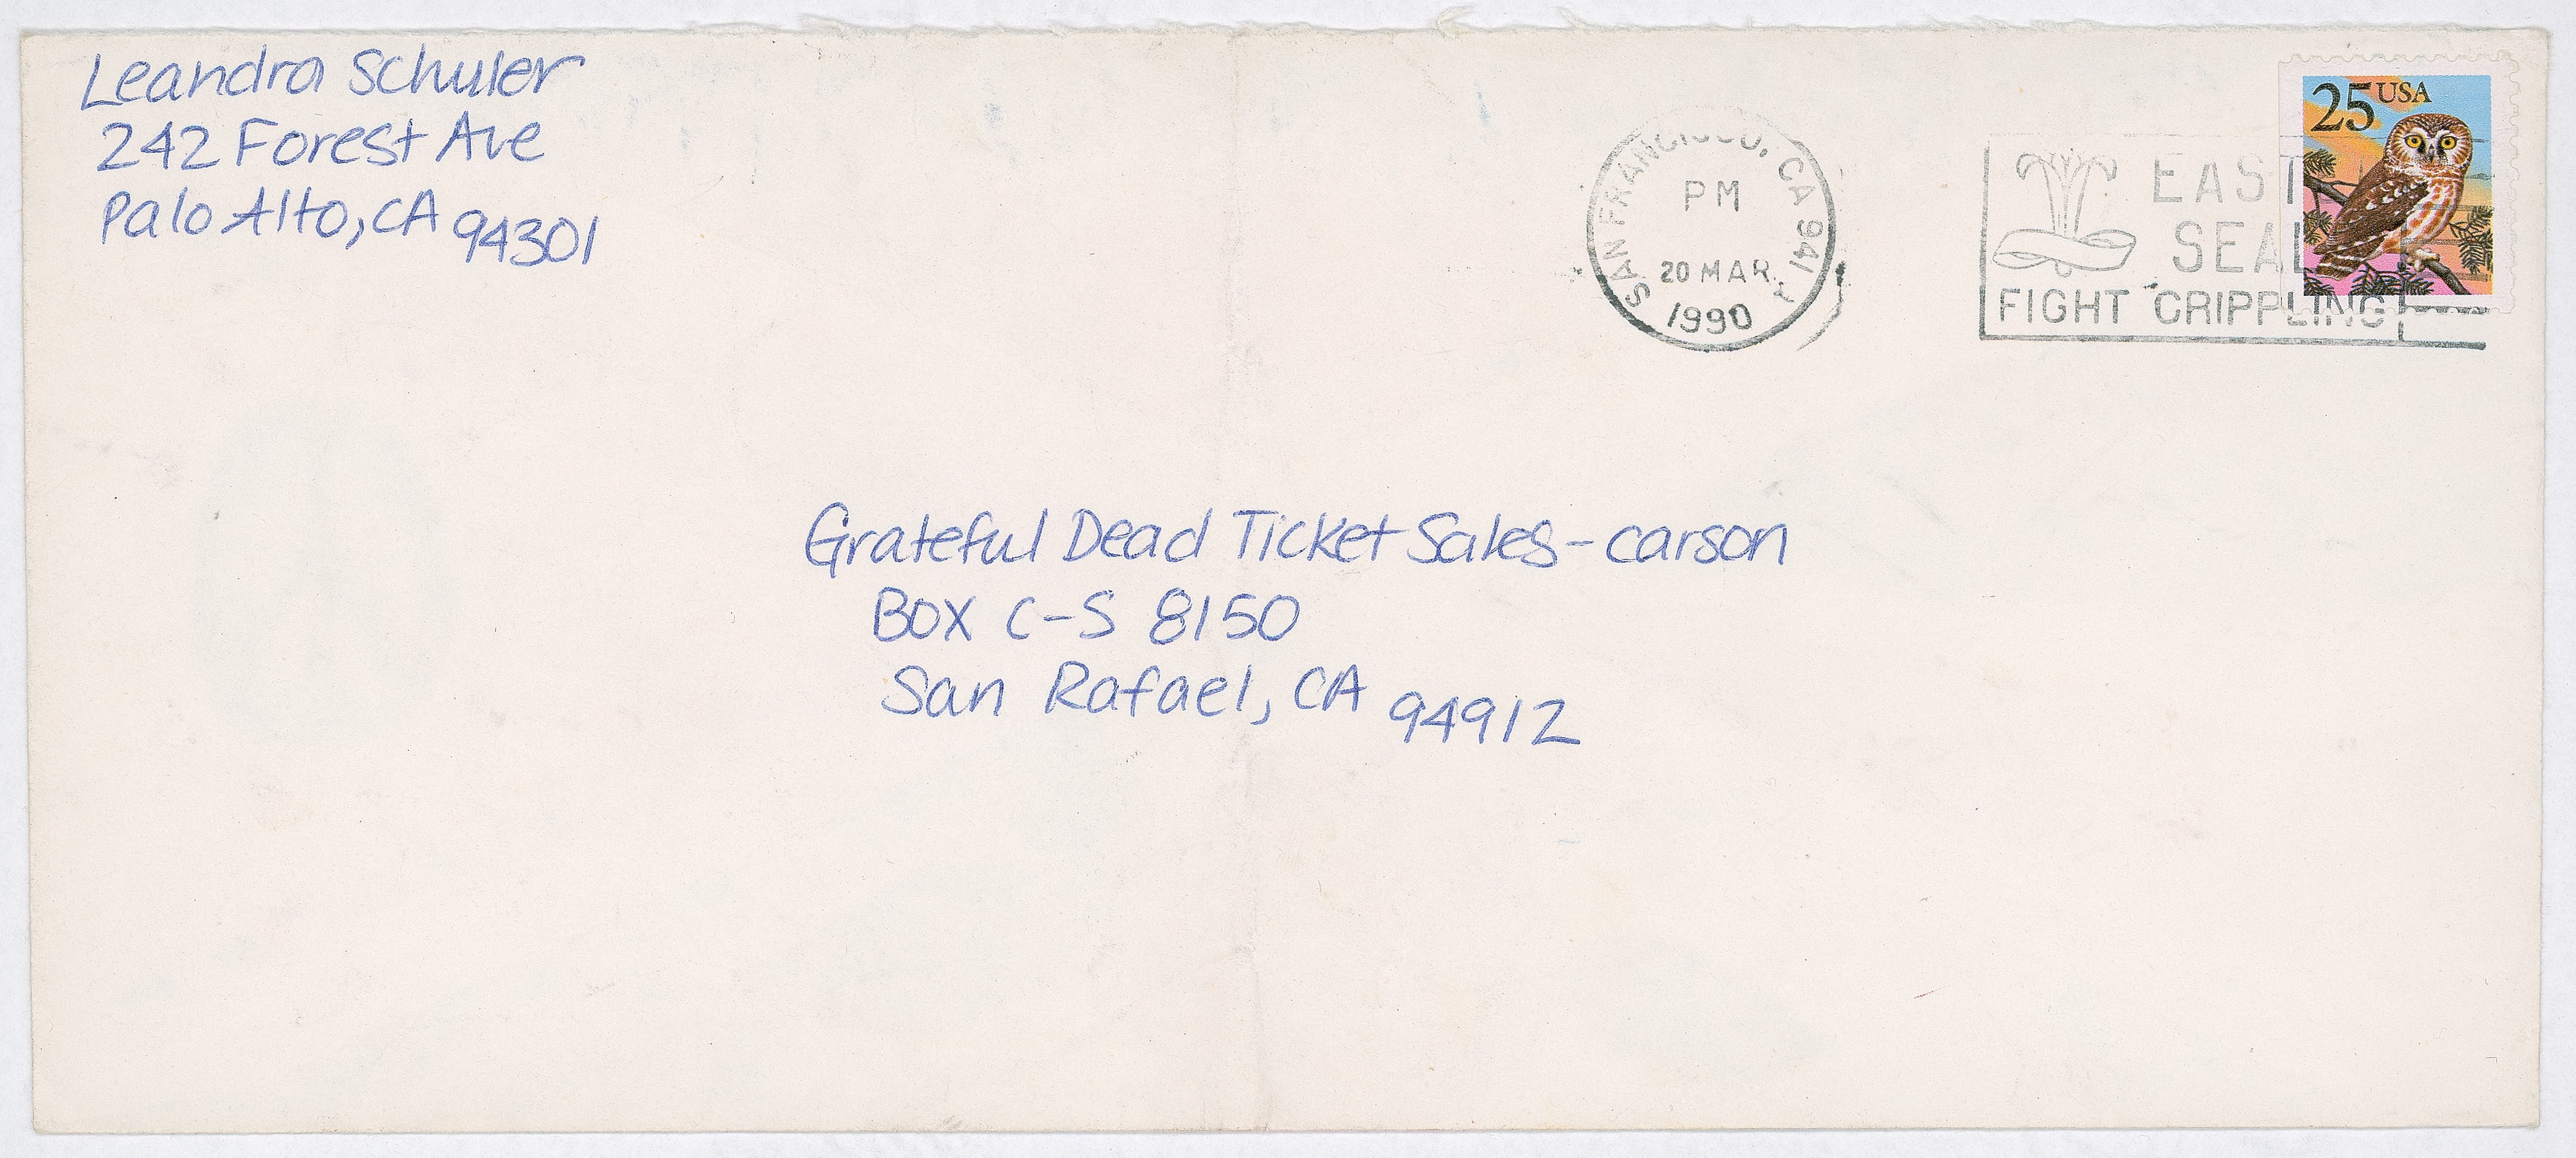 Leandra Schuler
242 Forest Ave
Palo Alto, CA 94301
25 USA
SAN FRANCISCO, CA 941
PM
20 MAR
1990
EAST
SEAL
FIGHT CRIPPLING!
Grateful Dead Ticket Sales - carson
BOX C-S 8150
San Rafael, CA 94912